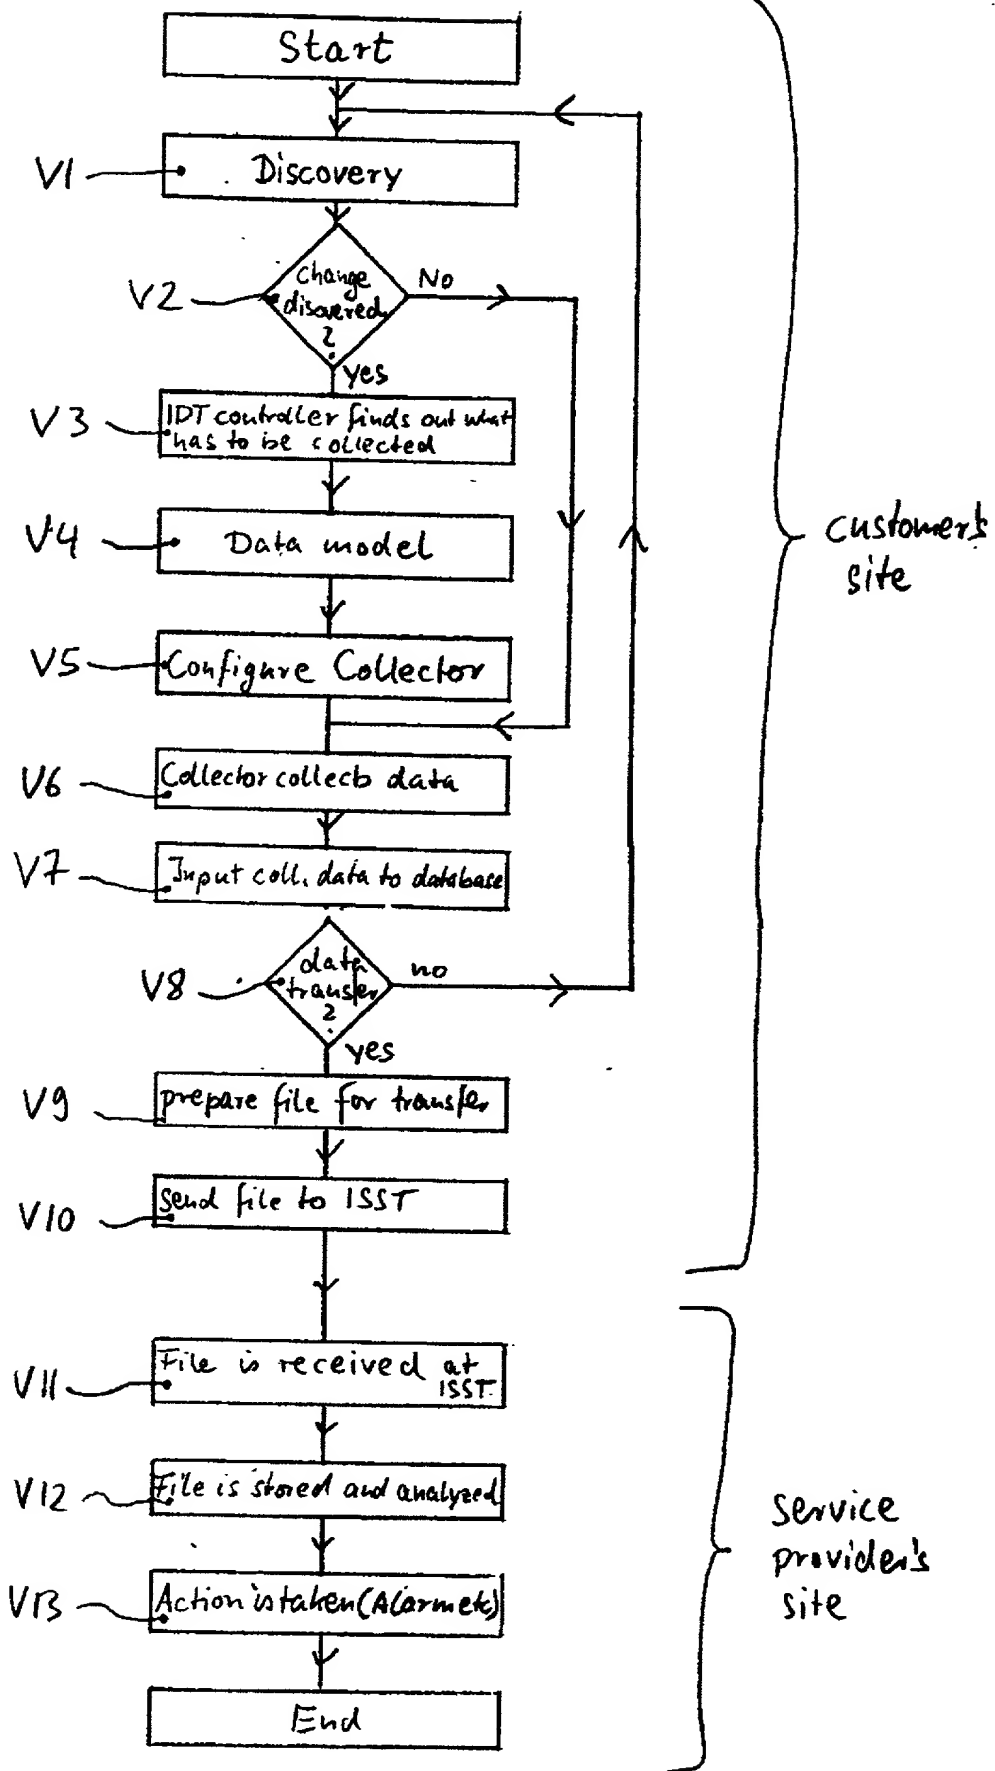 Start
V1
Discovery
V2
change
discovered
?
No
yes
V3
IDT controller finds out what
has to be collected
V4
Data model
customer's
site
V5
Configure Collector
V6
Collector collects data
V7
Input coll. data to database
V8
data
transfer
?
no
yes
V9
prepare file for transfer
V10
send file to ISST
V11
File is received at
ISST
V12
File is stored and analyzed
service
provider's
site
V13
Action is taken (Alarm etc)
End